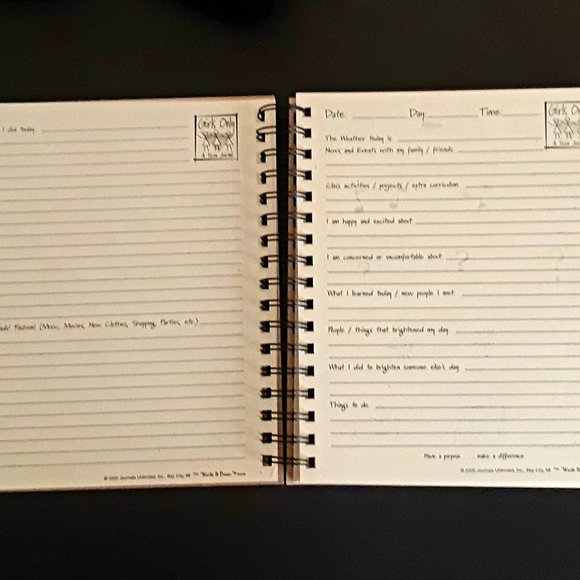 I did today
Girls Only
A Teen Journal
Fads! Fashion! (Music, Movies, New Clothes, Shopping, Parties, etc.)
© 2002 Journals Unlimited, Inc., Bay City, MI ™ "Write it Down" ™ Series
Date: Day Time:
Girls Only
A Teen Journal
The Weather today is
News and Events with my family / friends
Class activities / projects / extra curriculum
I am happy and excited about
I am concerned or uncomfortable about
What I learned today / new people I met
People / things that brightened my day
What I did to brighten someone else's day
Things to do
Have a purpose make a difference
© 2002 Journals Unlimited, Inc., Bay City, MI ™ "Write